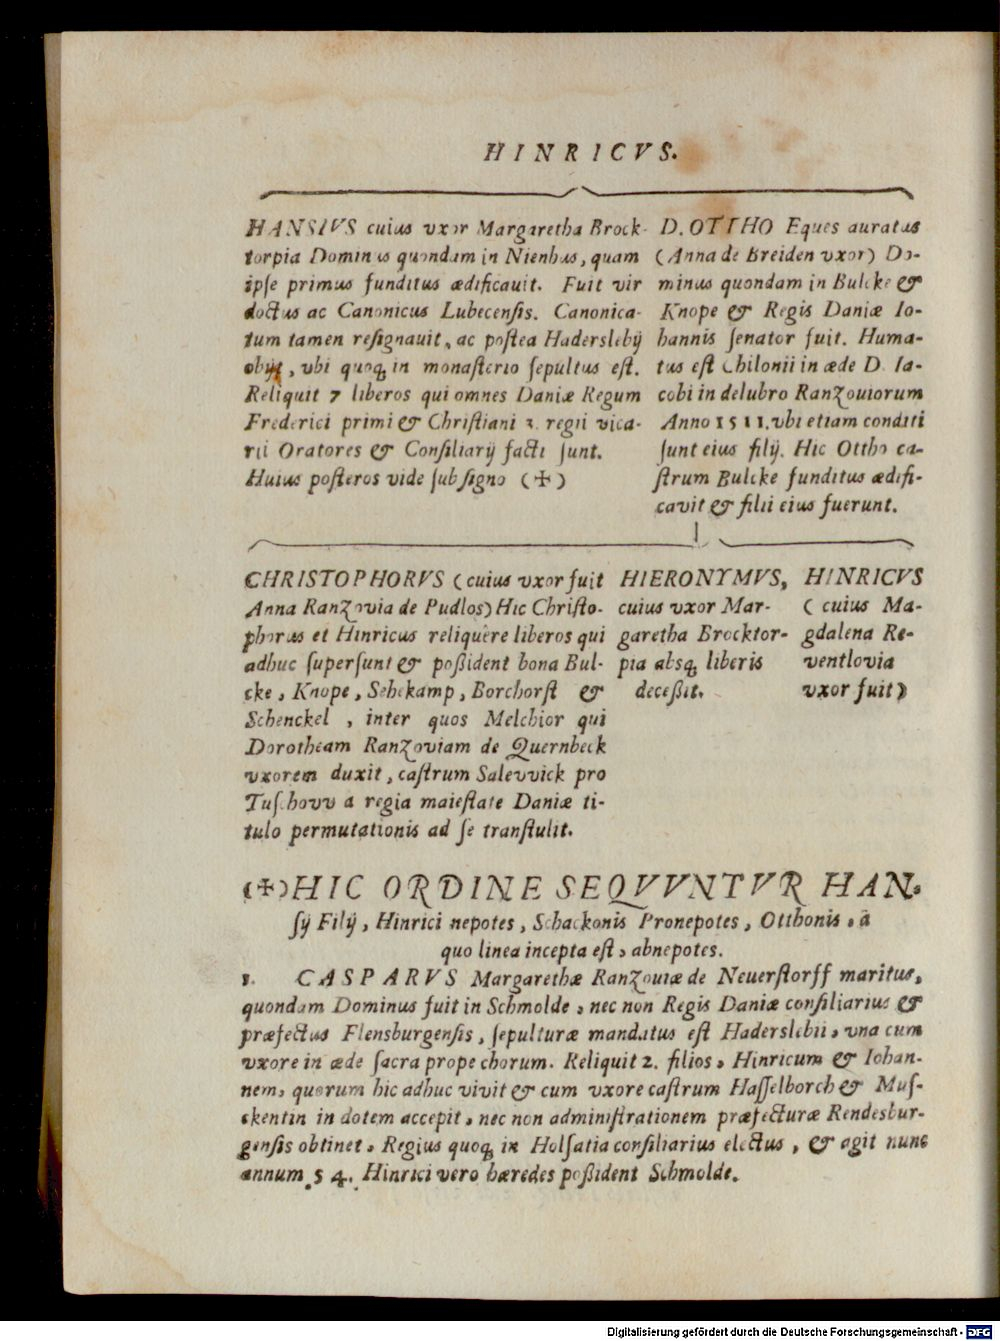 HINRICVS.
HANSIVS cuius vxor Margaretha Brock-
torpia Dominus quondam in Nienhus, quam
ipſe primus funditus ædificauit. Fuit vir
doctus ac Canonicus Lubecenſis. Canonica-
tum tamen reſignauit, ac poſtea Haderslebij
obijt, vbi quoq; in monaſterio ſepultus eſt.
Reliquit 7 liberos qui omnes Daniæ Regum
Frederici primi & Chriſtiani 3. regii vica-
rii Oratores & Conſiliarij facti ſunt.
Huius poſteros vide ſub ſigno (✠)
D. OTTHO Eques auratus
(Anna de Breiden vxor) Do-
minus quondam in Bulcke &
Knope & Regis Daniæ Io-
hannis ſenator fuit. Huma-
tus eſt Chilonii in æde D. Ia-
cobi in delubro Ranzouiorum
Anno 1511. vbi etiam conditi
ſunt eius filij. Hic Ottho ca-
ſtrum Bulcke funditus ædifi-
cavit & filii eius fuerunt.
CHRISTOPHORVS (cuius vxor fuit
Anna Ranzovia de Pudlos) Hic Chriſto-
phorus et Hinricus reliquere liberos qui
adhuc ſuperſunt & poßident bona Bul-
cke, Knope, Sehekamp, Borchorſt &
Schenckel, inter quos Melchior qui
Dorotheam Ranzoviam de Quernbeck
vxorem duxit, caſtrum Salevvick pro
Tuſchovv a regia maieſtate Daniæ ti-
tulo permutationis ad ſe tranſtulit.
HIERONYMVS,
cuius vxor Mar-
garetha Brocktor-
pia absq; liberis
deceßit.
HINRICVS
(cuius Ma-
gdalena Re-
ventlovia
vxor fuit)
(✠) HIC ORDINE SEQVVNTVR HAN-
ſij Filij, Hinrici nepotes, Schackonis Pronepotes, Otthonis, à
quo linea incepta eſt, abnepotes.
1. CASPARVS Margarethæ Ranzouiæ de Neuerſtorff maritus,
quondam Dominus fuit in Schmolde, nec non Regis Daniæ conſiliarius &
præfectus Flensburgenſis, ſepulturæ mandatus eſt Haderslebii, vna cum
vxore in æde ſacra prope chorum. Reliquit 2. filios, Hinricum & Iohan-
nem, quorum hic adhuc vivit & cum vxore caſtrum Haſſelborch & Muſ-
ckentin in dotem accepit, nec non adminiſtrationem præfecturæ Rendesbur-
genſis obtinet, Regius quoq; in Holſatia conſiliarius electus, & agit nunc
annum 54. Hinrici vero hæredes poßident Schmolde.
Digitalisierung gefördert durch die Deutsche Forschungsgemeinschaft - DFG